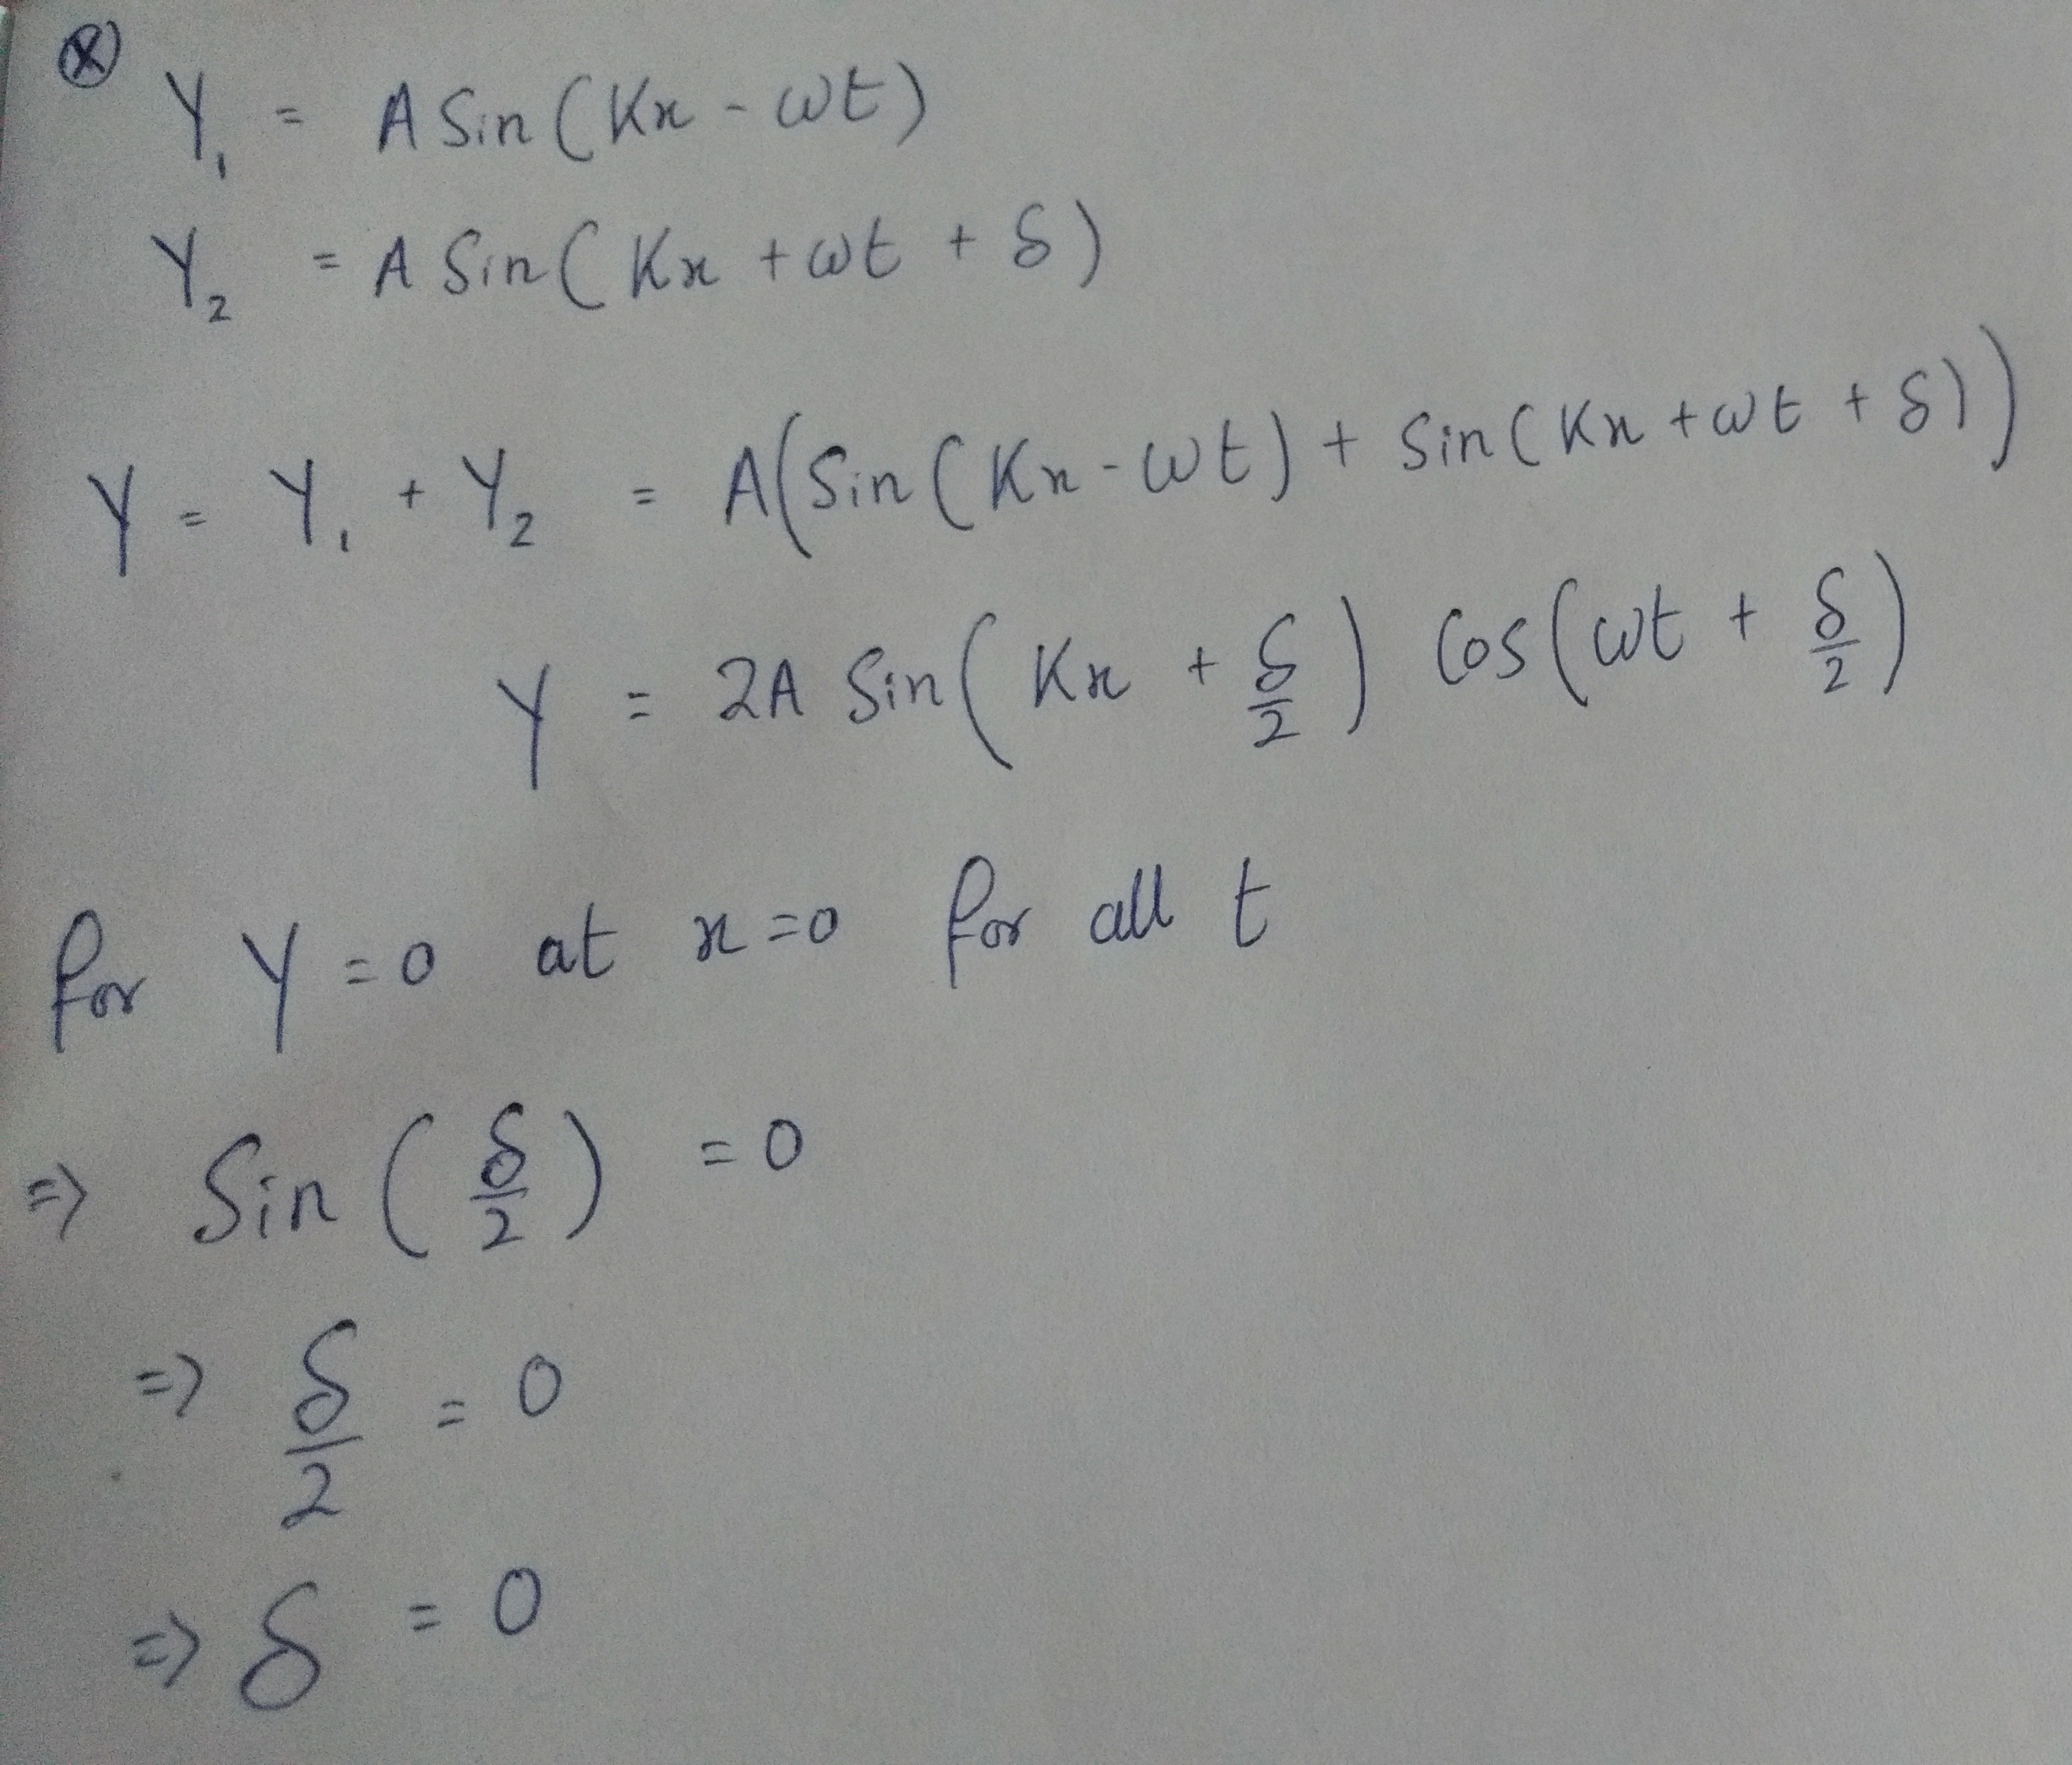 Ⓧ
Y₁ = A Sin(Kx - ωt)
Y₂ = A Sin(Kx + ωt + δ)
Y = Y₁ + Y₂ = A(Sin(Kx - ωt) + Sin(Kx + ωt + δ))
Y = 2A Sin(Kx + δ/2) Cos(ωt + δ/2)
for Y = 0 at x = 0 for all t
=> Sin(δ/2) = 0
=> δ/2 = 0
=> δ = 0